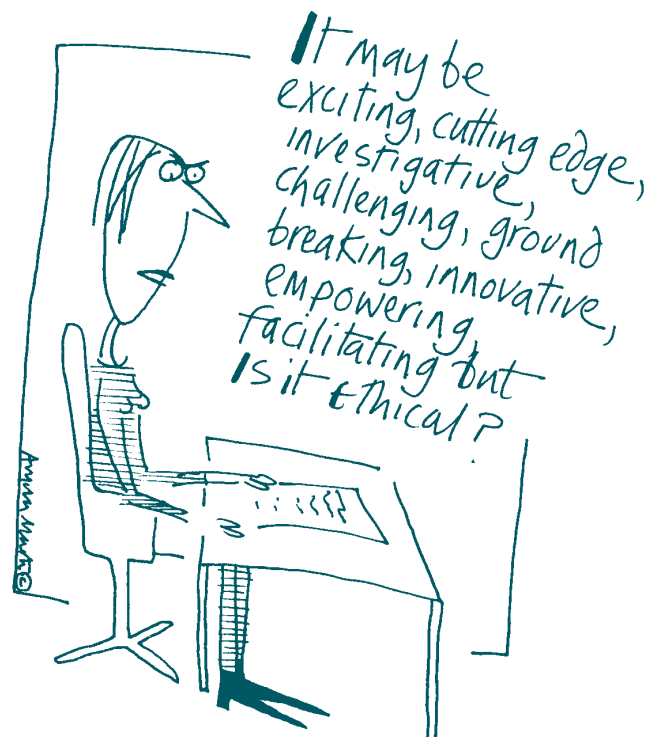 It may be
exciting, cutting edge,
investigative,
challenging, ground
breaking, innovative,
empowering,
facilitating but
Is it Ethical?